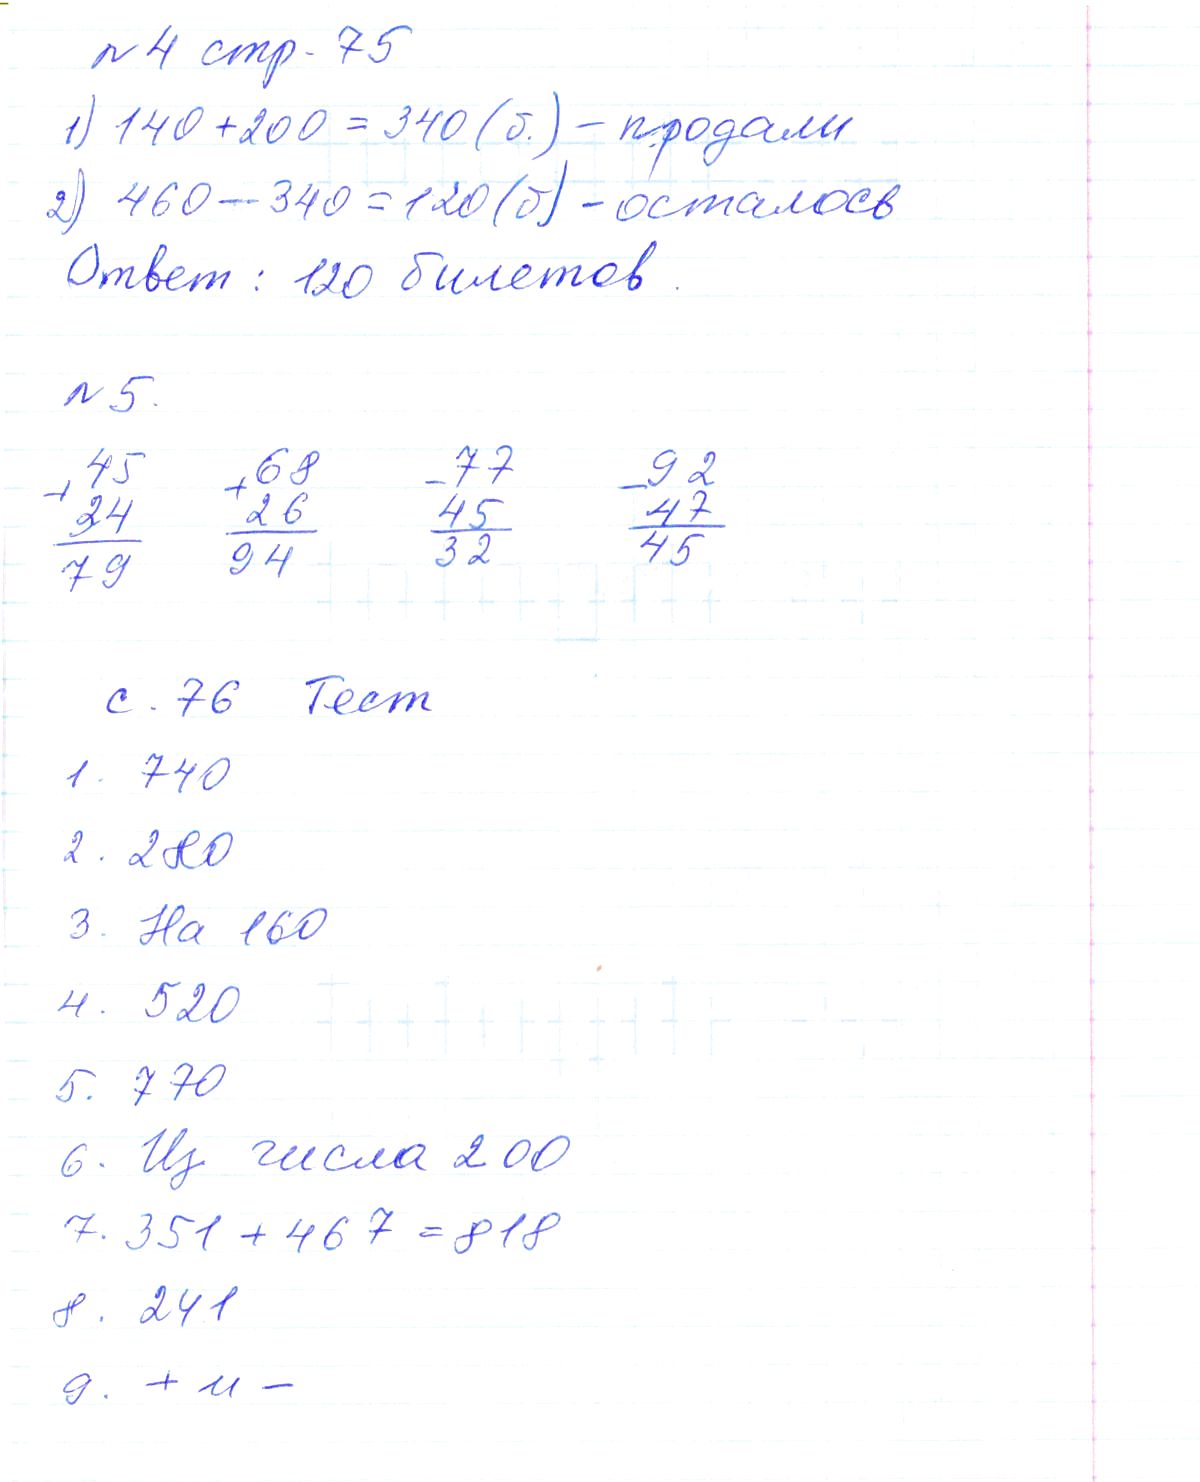 № 4 стр. 75
1) 140 + 200 = 340 (б.) – продали
2) 460 – 340 = 120 (б) – осталось
Ответ: 120 билетов.
№ 5.
45 68 77 92
+ + - -
34 26 45 47
79 94 32 45
с. 76 Тест
1. 740
2. 280
3. На 160
4. 520
5. 770
6. Из числа 200
7. 351 + 467 = 818
8. 241
9. + и –